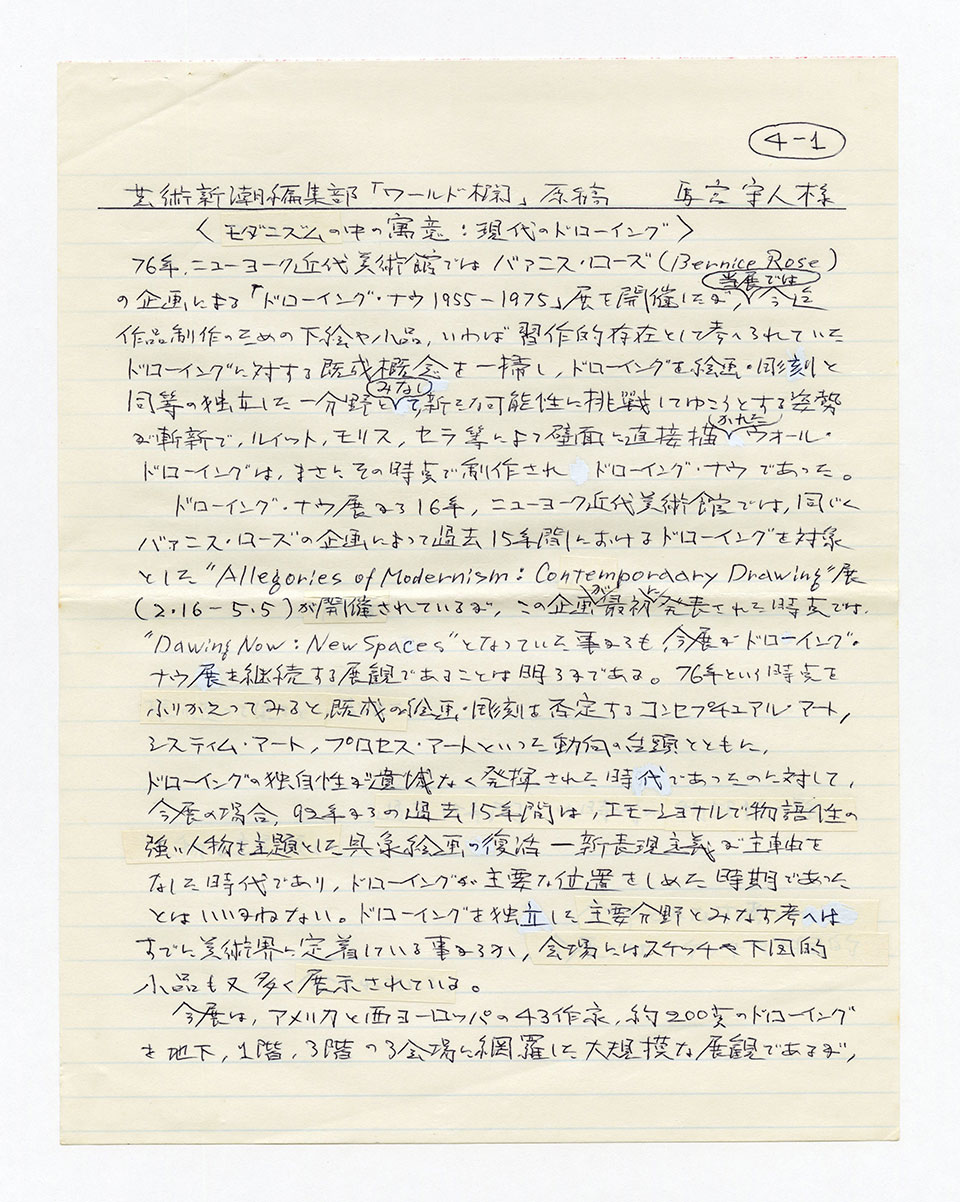 4-1
芸術新潮編集部「ワールド欄」原稿 馬言宇人様
〈モダニズムの中の寓意:現代のドローイング〉
76年,ニューヨーク近代美術館では バァニス・ローズ(Bernice Rose)
の企画による「ドローイング・ナウ 1955-1975」展を開催したが,当展では 今迄
作品制作のための下絵や小品,いわば習作的存在として考へられていた
ドローイングに対する既成概念を一掃し,ドローイングを絵画・彫刻と
同等の独立した一分野とみなし 新たな可能性に挑戦してゆこうとする姿勢
が斬新で,ルイット,モリス,セラ等によって壁面に直接描かれた ウォール・
ドローイングは,まさにその時点で制作され ドローイング・ナウ であった。
ドローイング・ナウ展から16年,ニューヨーク近代美術館では,同じく
バァニス・ローズの企画によって過去15年間におけるドローイングを対象
とした"Allegories of Modernism: Contemporaary Drawing"展
(2.16-5.5)が開催されているが,この企画が最初に発表された時点では,
"Dawing Now: New Spaces"となっていた事からも,今展がドローイング・
ナウ展を継続する展観であることは明らかである。76年という時点を
ふりかえってみると,既成の絵画・彫刻は否定するコンセプチュアル・アート,
システィム・アート,プロセス・アートといった動向の台頭とともに,
ドローイングの独自性が遺憾なく発揮された時代であったのに対して,
今展の場合,92年からの過去15年間は,エモーショナルで物語性の
強い人物を主題とした具象絵画の復活ー新表現主義が主軸を
なした時代であり,ドローイングが主要な位置をしめた時期であった
とはいいかねない。ドローイングを独立した主要分野とみなす考へは
すでに美術界に定着している事からか,会場にはスケッチや下図的
小品も又多く展示されている。
今展は,アメリカと西ヨーロッパの43作家,約200点のドローイング
を地下,1階,3階の3会場に網羅した大規模な展観であるが,